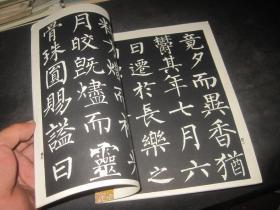 竟夕而異香猶
鬱其年七月六
日遷於長樂之
熾而
月皎既燼而靈
骨珠圓賜謚曰